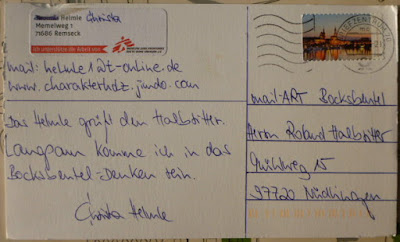 Helmle Christa
Memelweg 1
71686 Remseck
Ich unterstütze die Arbeit von
mail: helmle1@t-online.de
www.charakterholz.jimdo.com
Das Helmle grüßt den Halbritter.
Langsam komme ich in das
Bocksbeutel-Denken rein.
Christa Helmle
BRIEFZENTRUM
mail-ART Bocksbeutel
Herrn Roland Halbritter
Mühlweg 15
97720 Nüdlingen